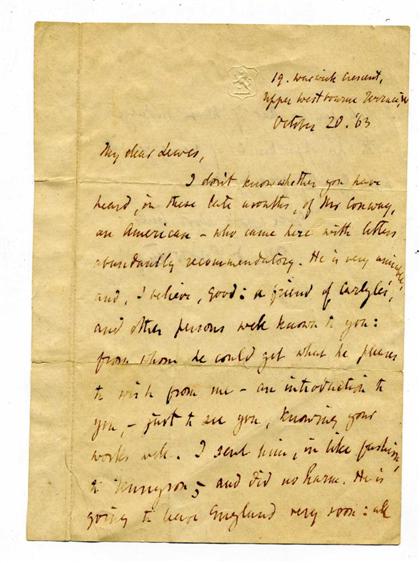 19. Warwick Crescent,
Upper Westbourne Terrace,
October 20. '63
My dear Lewes,
I don't know whether you have
heard, in these late months, of Mr Conway,
an American – who came here with letters
abundantly recommendatory. He is very amiable,
and, I believe, good: a friend of Carlyle's,
and other persons well known to you:
from whom he could get what he pleases
to wish from me – an introduction to
you, – just to see you, knowing your
works well. I sent him, in like fashion,
to Tennyson, and did no harm. He is
going to leave England very soon: all